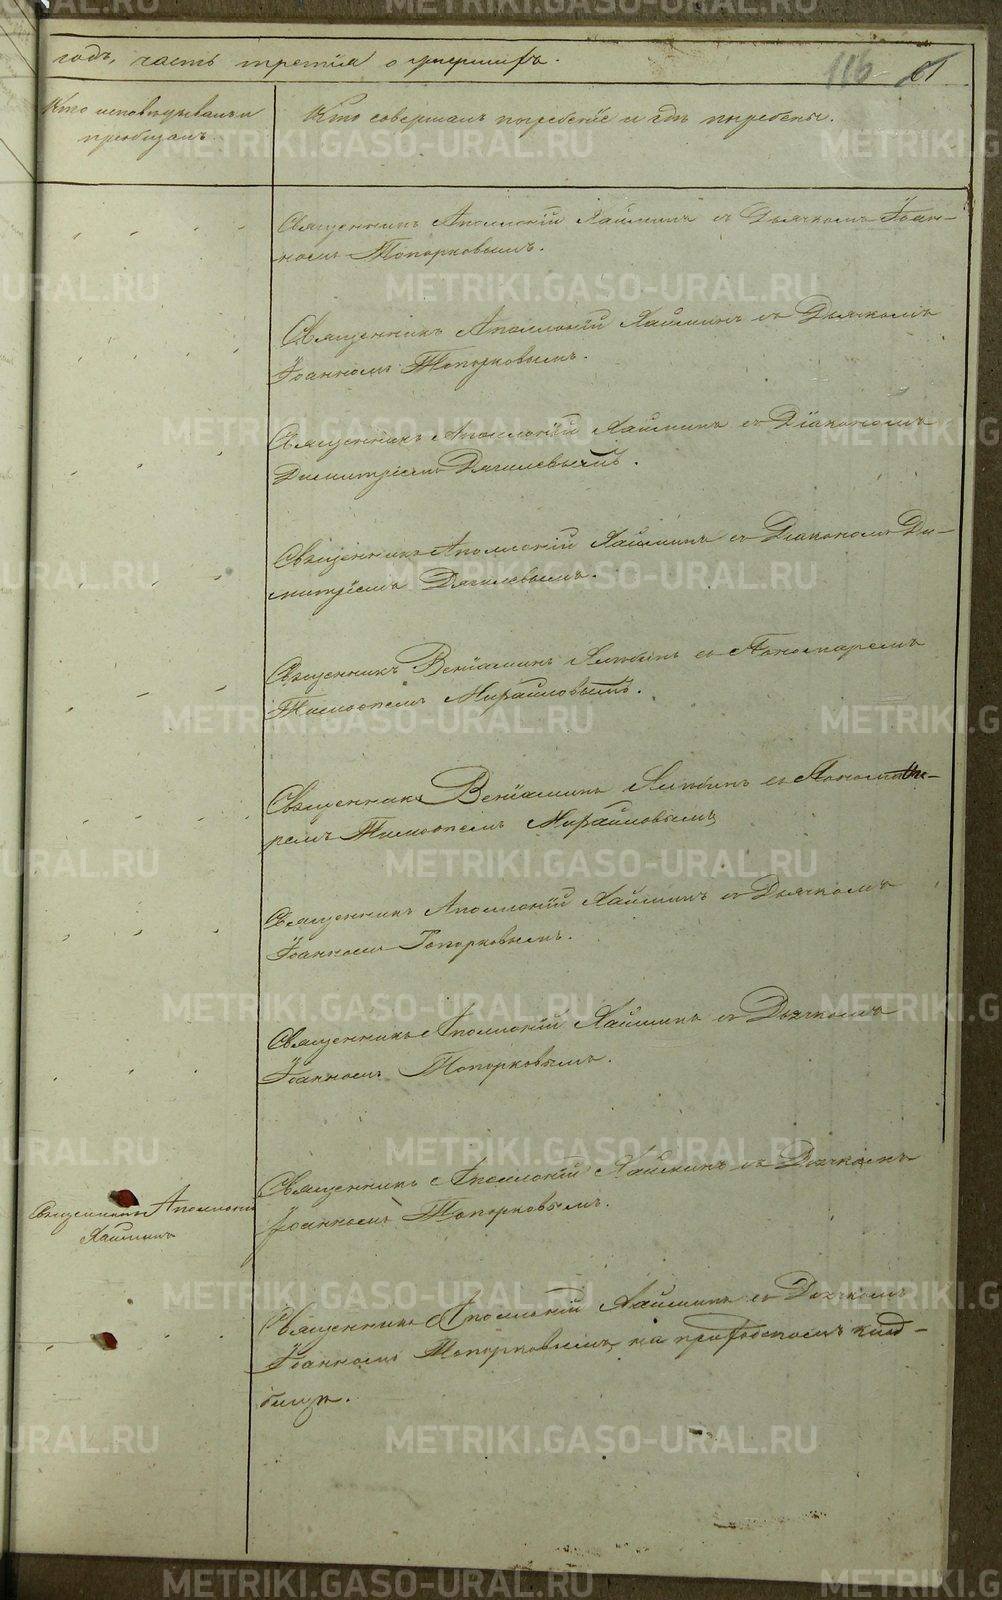 годъ, часть третія о умершихъ.
116
Кто исповѣдывалъ и
пріобщалъ.
Кто совершалъ погребеніе и гдѣ погребены.
Священникъ Аполлоній Хаймимъ съ Дьячкомъ Іоан-
номъ Топорковымъ.
Священникъ Аполлоній Хайминъ съ Дьячкомъ
Іоанномъ Топорковымъ.
Священникъ Аполлоній Хайминъ съ Діакономъ
Димитріемъ Дягилевымъ.
Священникъ Аполлоній Хайминъ съ Діакономъ Ди-
митріемъ Дягилевымъ.
Священникъ Веніаминъ съ Пономаремъ
Тимофеемъ Михайловымъ.
Священникъ Веніаминъ съ Понома-
ремъ Тимофеемъ Михайловымъ
Священникъ Аполлоній Хайминъ съ Дьячкомъ
Іоанномъ Топорковымъ.
Священникъ Аполлоній Хайминъ съ Дьячкомъ
Іоанномъ Топорковымъ.
Священникъ Аполлоній Хайминъ съ Дьячкомъ
Іоанномъ Топорковымъ.
Священникъ Аполлоній
Хайминъ
Священникъ Аполлоній Хайминъ съ Дьячкомъ
Іоанномъ Топорковымъ на приходскомъ клад-
бищѣ.
METRIKI.GASO-URAL.RU